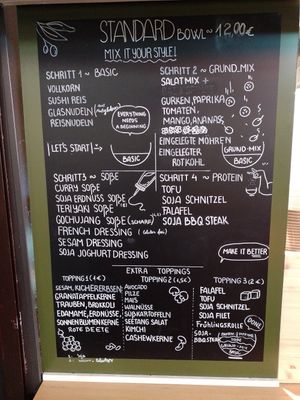 STANDARD BOWL ~ 12,00€
MIX IT YOUR STYLE!
SCHRITT 1 ~ BASIC
VOLLKORN
SUSHI REIS
GLASNUDELN
REISNUDELN
EVERYTHING
NEEDS
A BEGINNING
| LET'S START |
BASIC
SCHRITT 2 ~ GRUND.MIX
SALATMIX +
GURKEN, PAPRIKA
TOMATEN,
MANGO, ANANAS,
EINGELEGTE MÖHREN
EINGELEGTER
ROTKOHL
GRUND-MIX
BASIC
SCHRITT 3 ~ SOßE
CURRY SOßE
SOJA ERDNUSS SOßE
TERIYAKI SOßE
GOCHUJANG SOßE (SCHARF)
FRENCH DRESSING
SESAM DRESSING
SOJA JOGHURT DRESSING
SCHRITT 4 ~ PROTEIN
TOFU
SOJA SCHNITZEL
FALAFEL
SOJA BBQ STEAK
MAKE IT BETTER
EXTRA TOPPINGS
TOPPING 1 (1€)
SESAM, KICHERERBSEN
GRANATAPFELKERNE
TRAUBEN, BROKKOLI
EDAMAME, ERDNÜSSE,
SONNENBLUMENKERNE
ROTE BEETE
TOPPING 2 (1,5€)
AVOCADO
PILZE
MAIS
WALNÜSSE
SÜßKARTOFFELN
SEETANG SALAT
KIMCHI
CASHEWKERNE
TOPPING 3 (2€)
FALAFEL
TOFU
SOJA SCHNITZEL
SOJA FILET
FRÜHLINGSROLLE
SOJA-
BBQ STEAK
DONE
GRUND-MIX
BASIC